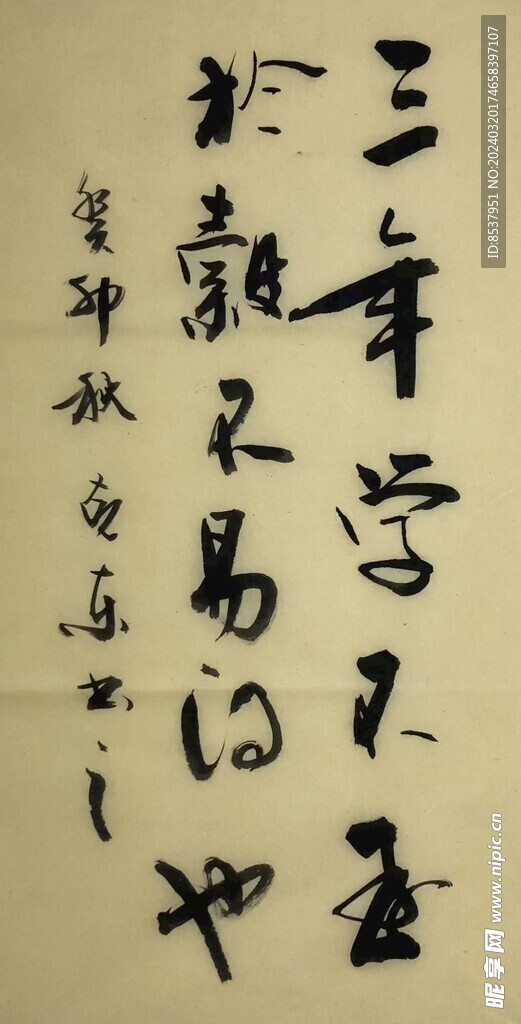 三年学不至
於穀不易得也
癸卯秋克东书之
ID:8537951 NO:20240320174658397107
昵享网 www.nipic.cn